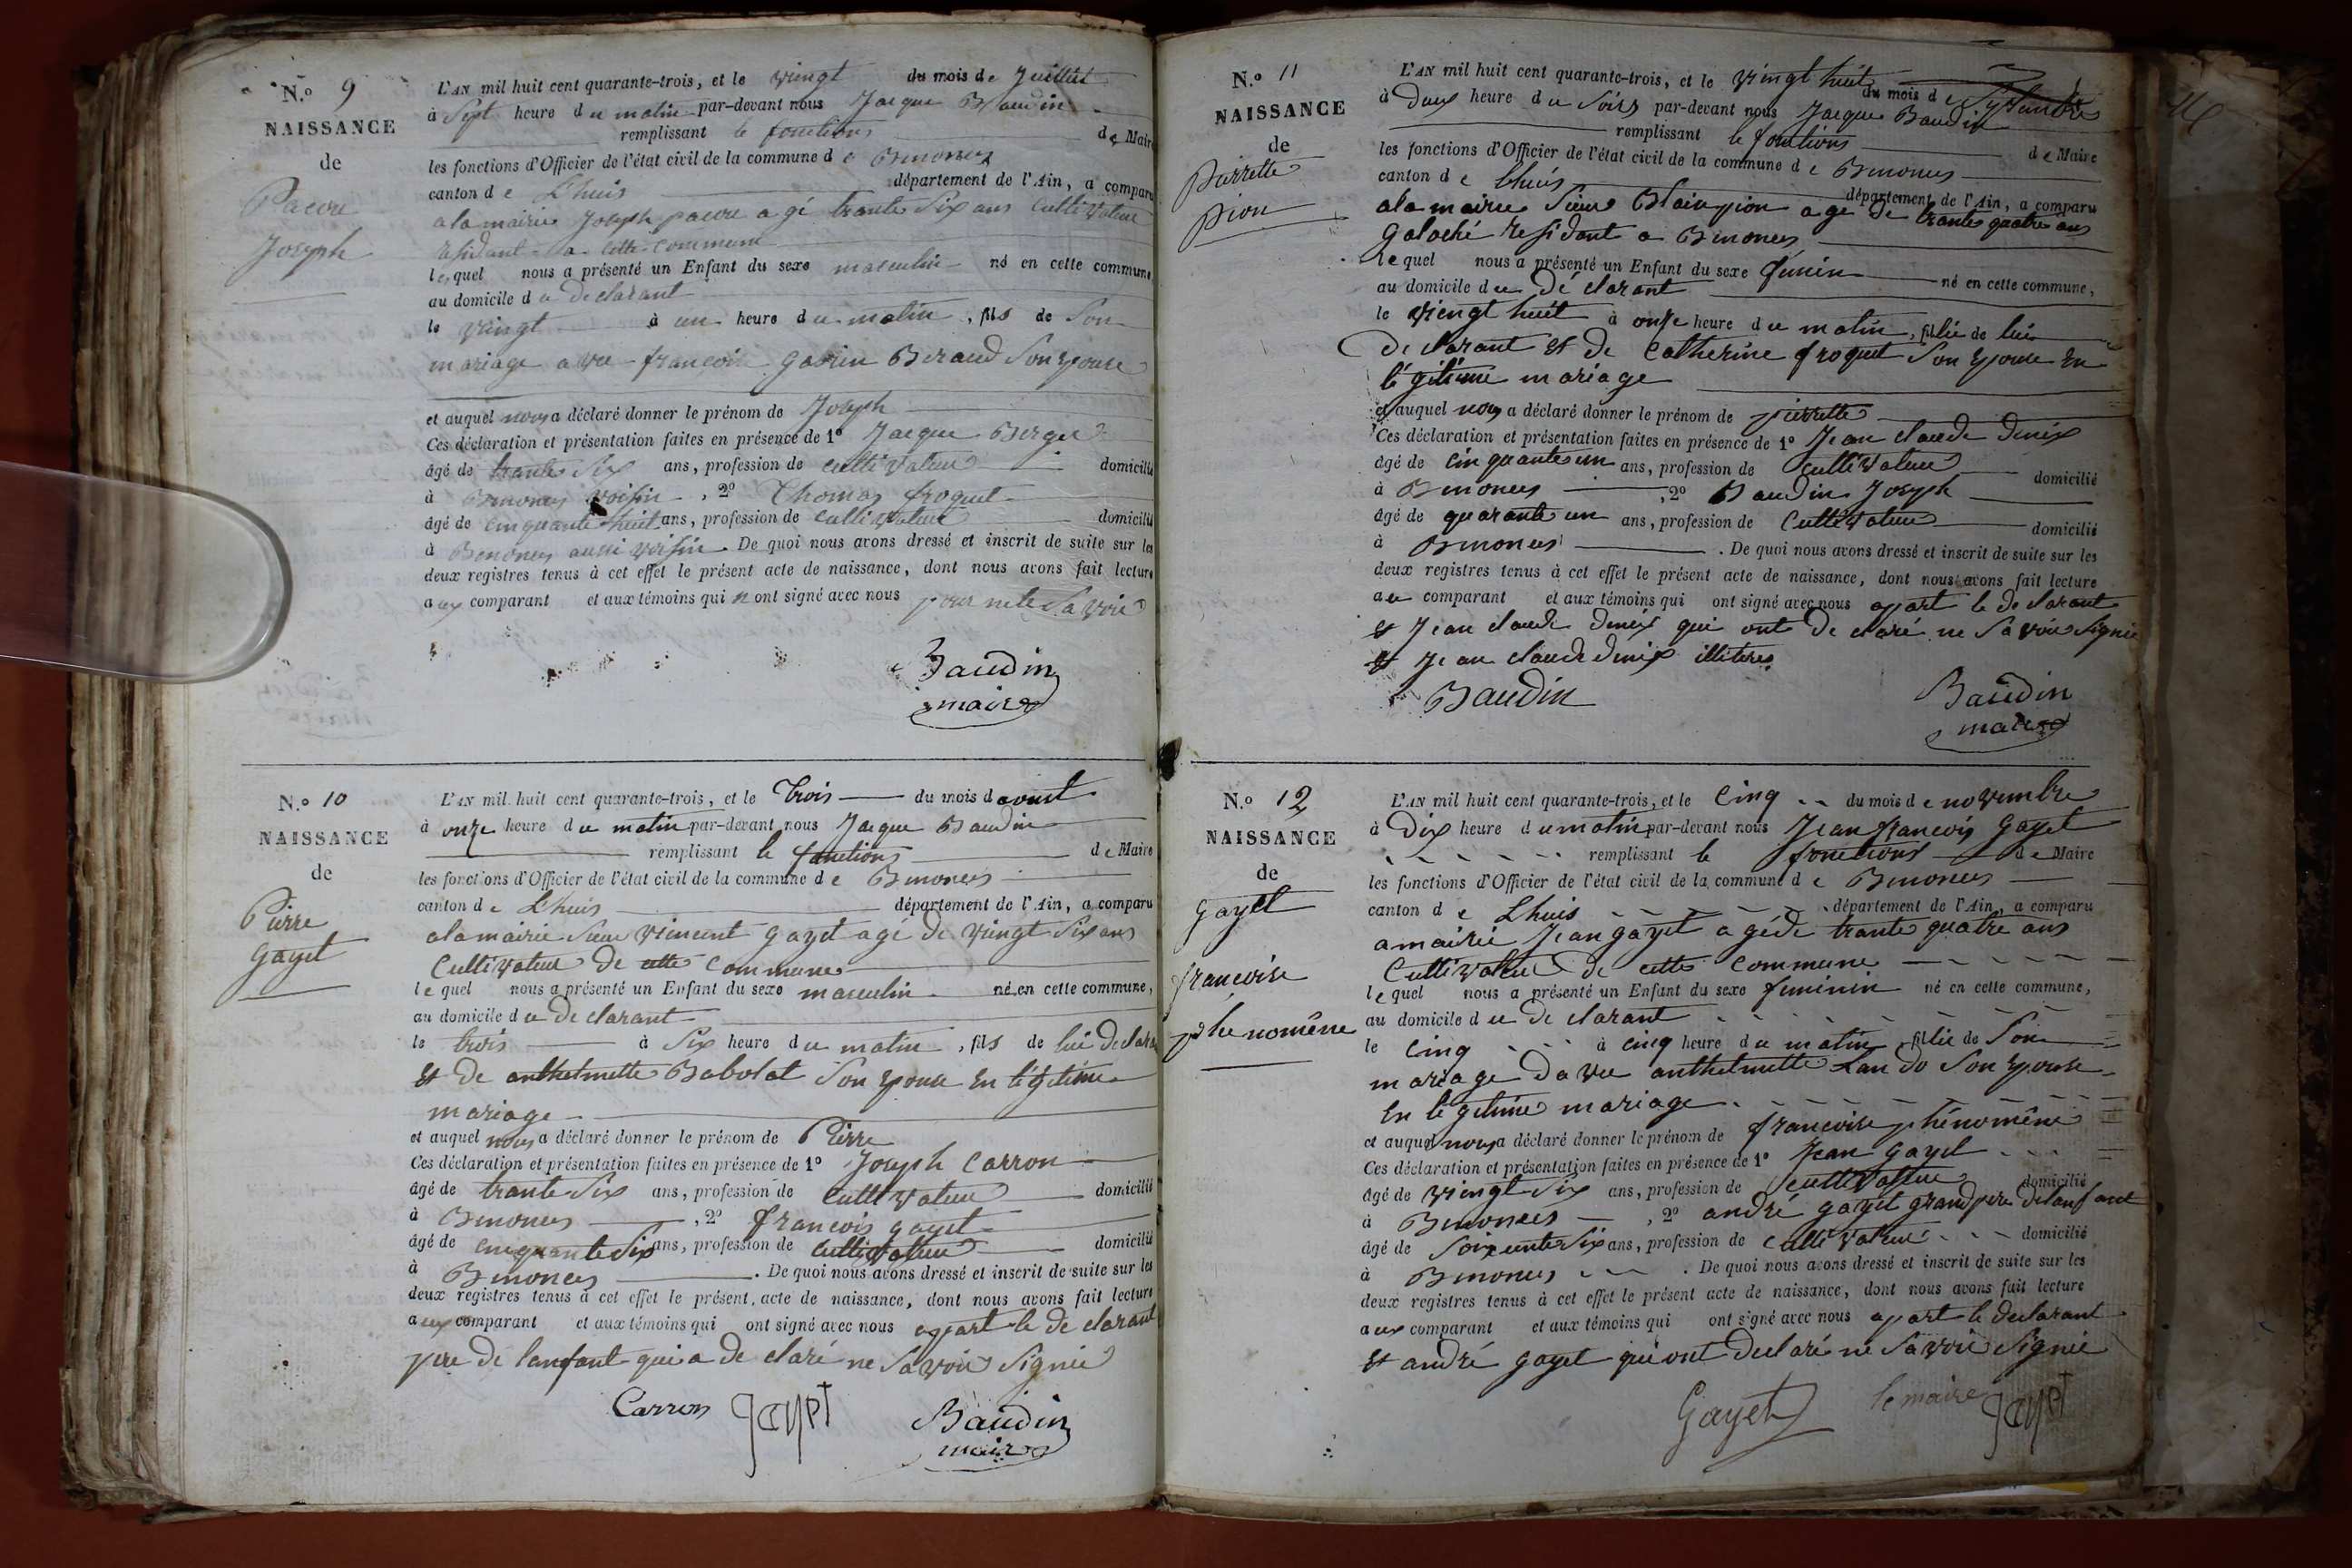 N.º 9
NAISSANCE
de
Pacure
Joseph
L'AN mil huit cent quarante-trois, et le vingt du mois de Juillet
à Sept heure du matin par-devant nous Jacque Baudin
remplissant le fonctions de Maire
les fonctions d'Officier de l'état civil de la commune de Benonces
canton de Lhuis département de l'Ain, a comparu
a la mairie Joseph pacure agé trante Six ans Cultivateur
résidant a cette commune
lequel nous a présenté un Enfant du sexe masculin né en cette commune,
au domicile du declarant
le vingt à un heure du matin, fils de Son
mariage avec francoise Beraud Son epouse
et auquel nous a déclaré donner le prénom de Joseph
Ces déclaration et présentation faites en présence de 1º Jacque Berger
âgé de trante Six ans, profession de cultivateur domicilié
à Benonces voisin, 2º Thomas froquet
âgé de cinquante huit ans, profession de cultivateur domicilié
à Benonces aussi voisin. De quoi nous avons dressé et inscrit de suite sur les
deux registres tenus à cet effet le présent acte de naissance, dont nous avons fait lecture
aux comparant et aux témoins qui n ont signé avec nous pour ne le Savoir
Baudin
maire
N.º 10
NAISSANCE
de
Pierre
Gayet
L'AN mil huit cent quarante-trois, et le Trois du mois d'aoust
à onze heure du matin par-devant nous Jacque Baudin
remplissant le fonctions de Maire
les fonctions d'Officier de l'état civil de la commune de Benonces
canton de Lhuis département de l'Ain, a comparu
a la mairie Sieur vincent gayet agé de vingt Six ans
Cultivateur de cette commune
lequel nous a présenté un Enfant du sexe masculin né en cette commune,
au domicile du declarant
le trois à Six heure du matin, fils de lui declarant
Et de anthelmette Babolat Son epouse En légitime
mariage
et auquel nous a déclaré donner le prénom de Pierre
Ces déclaration et présentation faites en présence de 1º Joseph Carron
âgé de trante Six ans, profession de cultivateur domicilié
à Benonces, 2º francois gayet
âgé de cinquante Six ans, profession de cultivateur domicilié
à Benonces. De quoi nous avons dressé et inscrit de suite sur les
deux registres tenus à cet effet le présent acte de naissance, dont nous avons fait lecture
aux comparant et aux témoins qui ont signé avec nous apart le declarant
pere de lanfant qui a declaré ne Savoir Signie
Carron gayet Baudin
maire
N.º 11
NAISSANCE
de
Pierrette
pion
L'AN mil huit cent quarante-trois, et le vingt huit du mois de Septembre
à Deux heure du Soirs par-devant nous Jacque Baudin
remplissant le fonctions de Maire
les fonctions d'Officier de l'état civil de la commune de Benonces
canton de Lhuis département de l'Ain, a comparu
a la mairie Sieur Blain pion agé de trante quatre ans
Galoché residant a Benonces
lequel nous a présenté un Enfant du sexe féminin né en cette commune,
au domicile du Déclarant
le vient huit à onze heure du matin, fillie de lui
Declarant Et de Catherine froquet Son epouse En
légitime mariage
et auquel nous a déclaré donner le prénom de pierrette
Ces déclaration et présentation faites en présence de 1º Jean claude
âgé de cinquante un ans, profession de cultivateur domicilié
à Benonces, 2º Baudin Joseph
âgé de quarante un ans, profession de Cultivateur domicilié
à Benonces. De quoi nous avons dressé et inscrit de suite sur les
deux registres tenus à cet effet le présent acte de naissance, dont nous avons fait lecture
au comparant et aux témoins qui ont signé avec nous apart le declarant
Et Jean claude qui ont declaré ne Savoir Signie
Et Jean claude illiteres
Baudin Baudin
maire
N.º 12
NAISSANCE
de
gayet
francoise
phénomène
L'AN mil huit cent quarante-trois, et le Cinq du mois de novembre
à Dix heure du matin par-devant nous Jean francois Gayet
remplissant le fonctions de Maire
les fonctions d'Officier de l'état civil de la commune de Benonces
canton de Lhuis département de l'Ain, a comparu
a mairie Jean gayet agé de trante quatre ans
Cultivateur de cette commune
lequel nous a présenté un Enfant du sexe feminin né en cette commune,
au domicile du Declarant
le Cinq à cinq heure du matin, fillie de Son
mariage davec anthelmette Lando Son epouse
En légitime mariage
et auquel nous a déclaré donner le prénom de francoise phénomène
Ces déclaration et présentation faites en présence de 1º Jean Gayet
âgé de vingt Six ans, profession de cultivateur domicilié
à Benonces, 2º andré gayet grand pere de lanfant
âgé de Soixente Six ans, profession de cultivateur domicilié
à Benonces. De quoi nous avons dressé et inscrit de suite sur les
deux registres tenus à cet effet le présent acte de naissance, dont nous avons fait lecture
aux comparant et aux témoins qui ont signé avec nous apart le declarant
Et andré gayet qui ont declaré ne Savoir Signie
Gayet le maire gayet